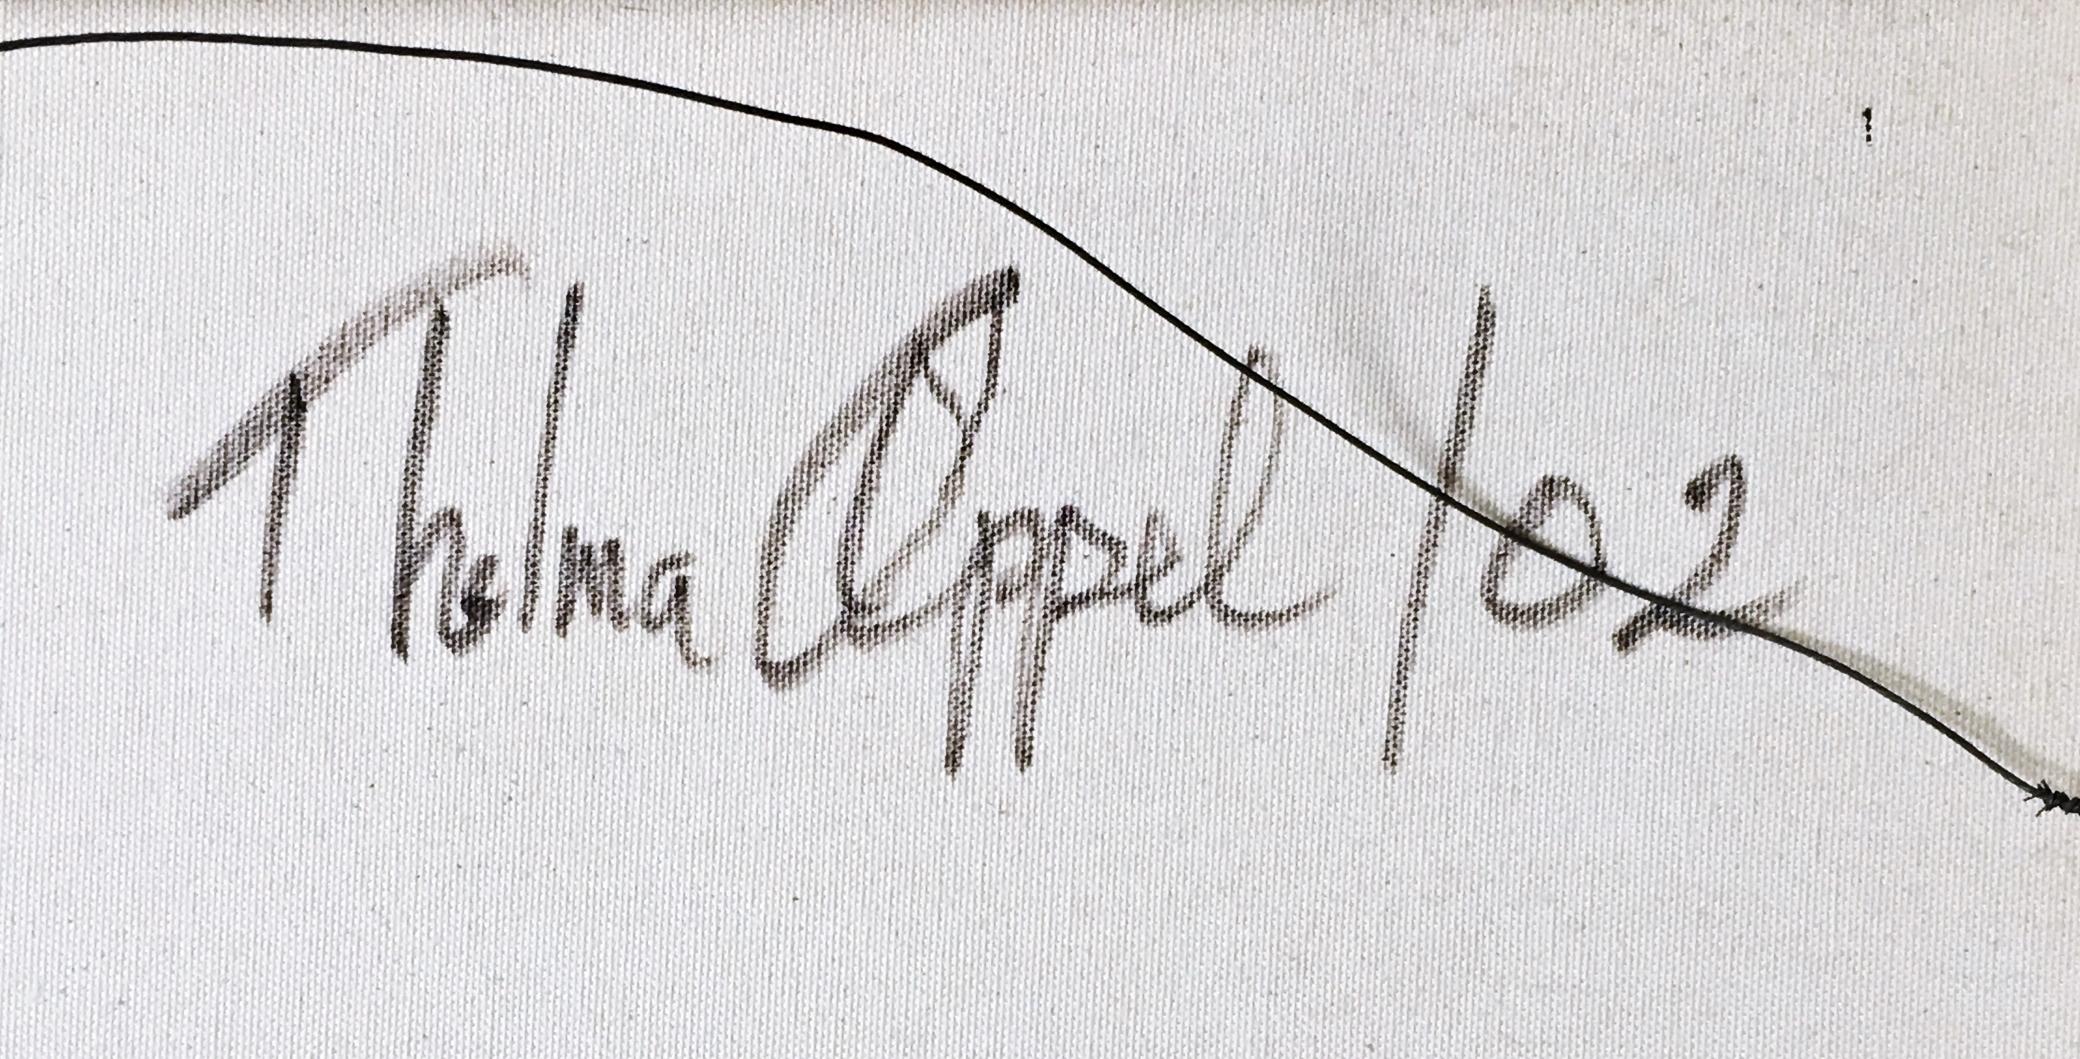 Thelma Appel /02